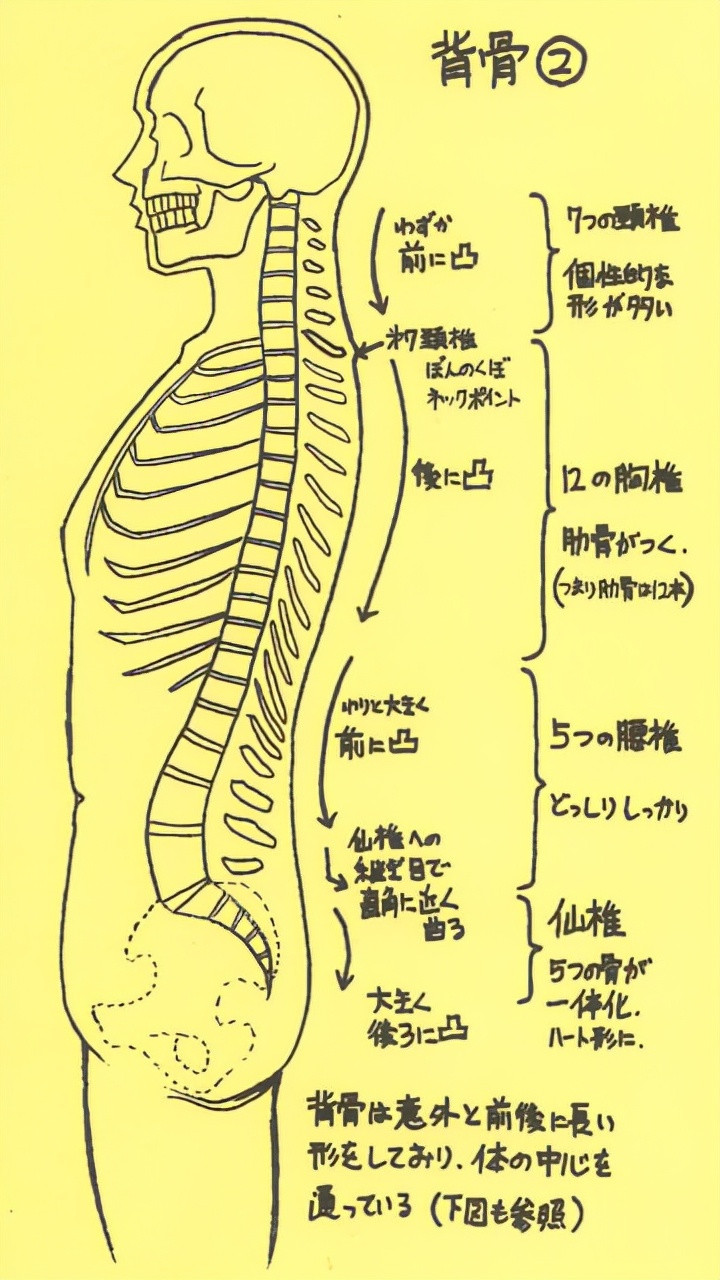 背骨②
わずか
前に凸
7つの頸椎
個性的な
形が多い
第7頸椎
ぼんのくぼ
ネックポイント
後に凸
12の胸椎
肋骨がつく.
(つまり肋骨は12本)
わりと大きく
前に凸
5つの腰椎
どっしりしっかり
仙椎への
継ぎ目で
直角に近く
曲る
仙椎
5つの骨が
一体化.
ハート形に.
大きく
後ろに凸
背骨は意外と前後に長い
形をしており.体の中心を
通っている(下図も参照)